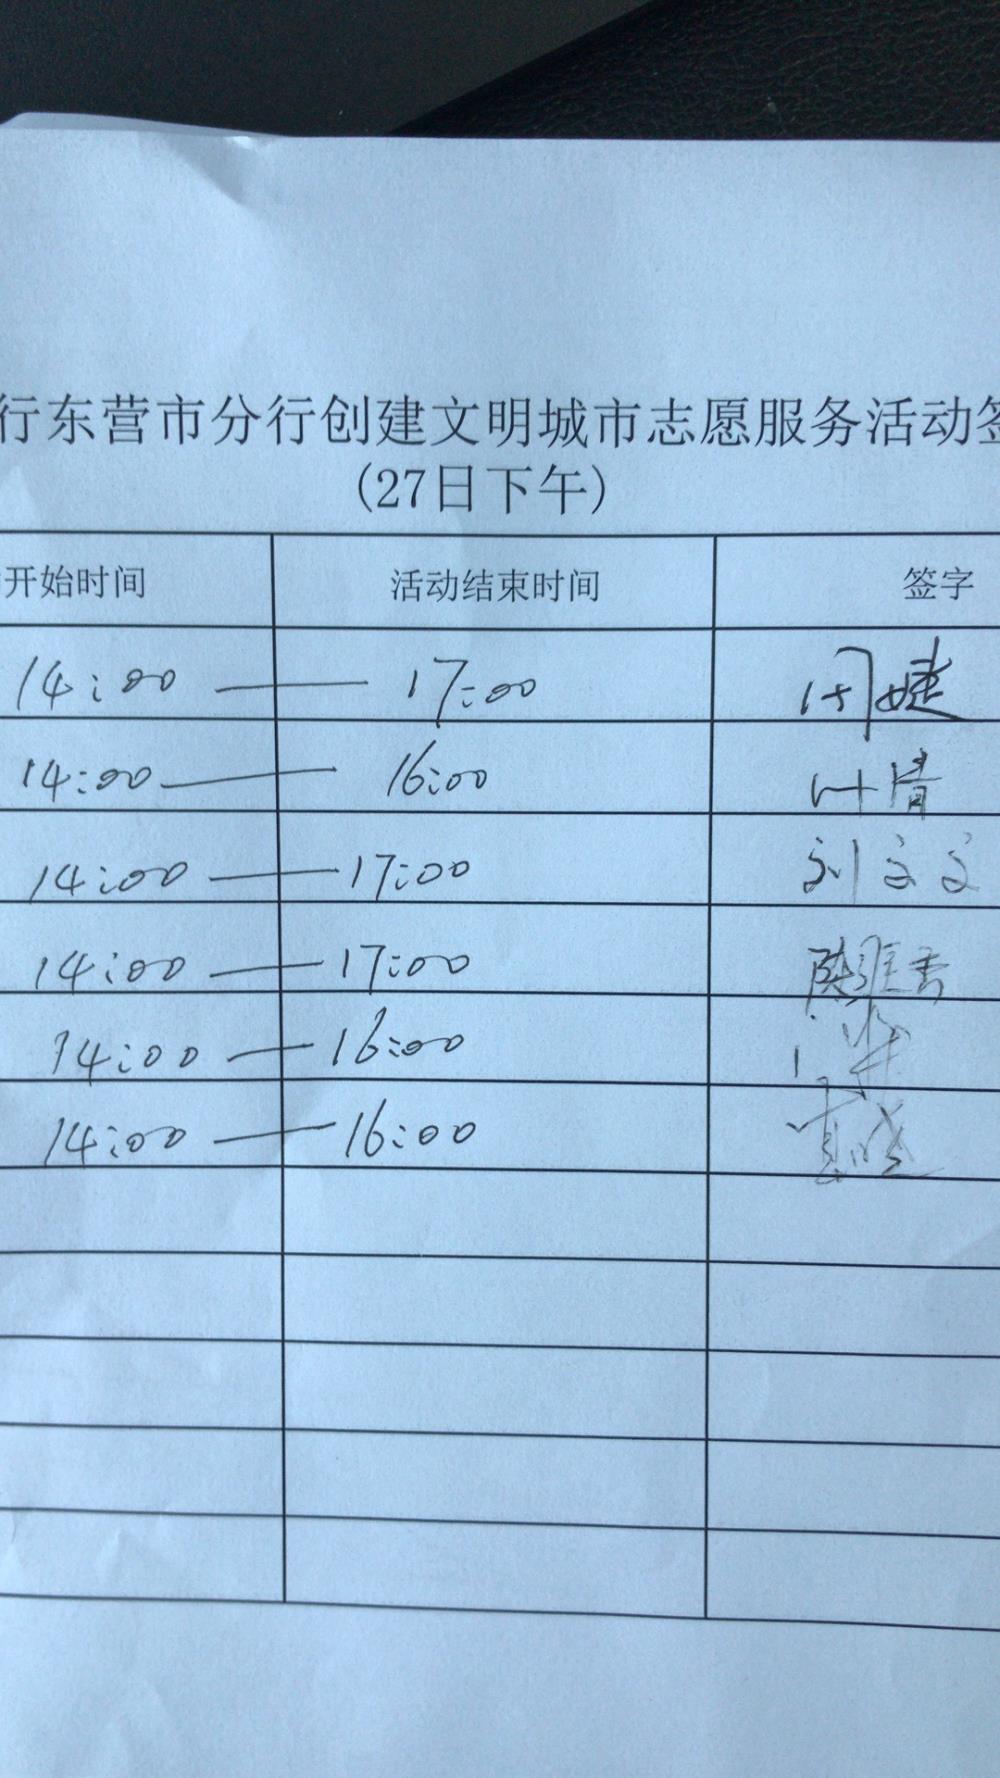 行东营市分行创建文明城市志愿服务活动签
(27日下午)
开始时间 活动结束时间 签字
14:00 — 17:00 周婕
14:00 — 16:00 叶倩
14:00 — 17:00 刘文文
14:00 — 17:00
14:00 — 16:00
14:00 — 16:00